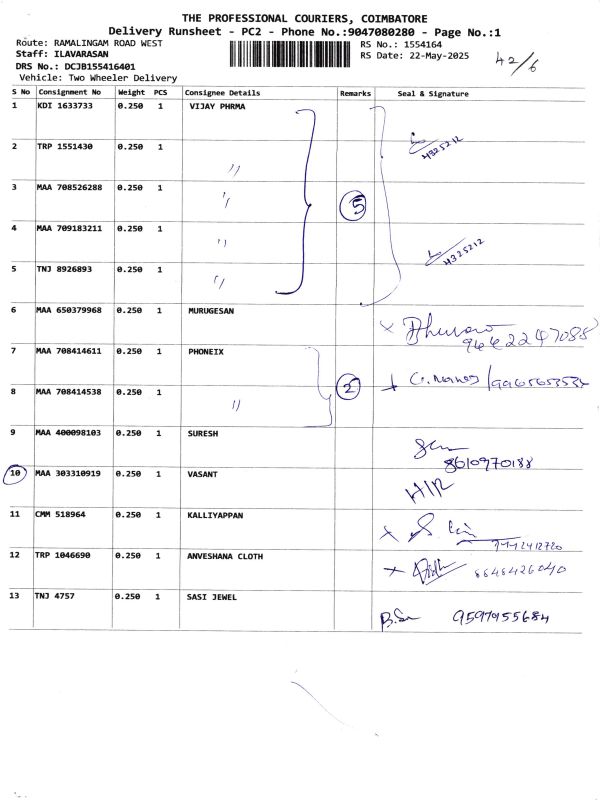 THE PROFESSIONAL COURIERS, COIMBATORE
Delivery Runsheet - PC2 - Phone No.:9047080280 - Page No.:1
Route: RAMALINGAM ROAD WEST RS No.: 1554164
Staff: ILAVARASAN RS Date: 22-May-2025 42/6
DRS No.: DCJB155416401
Vehicle: Two Wheeler Delivery
S No Consignment No Weight PCS Consignee Details Remarks Seal & Signature
1 KDI 1633733 0.250 1 VIJAY PHRMA
2 TRP 1551430 0.250 1 4325212
〃
3 MAA 708526288 0.250 1 〃 5
4 MAA 709183211 0.250 1 〃 4325212
5 TNJ 8926893 0.250 1 〃
6 MAA 650379968 0.250 1 MURUGESAN
9442247085
7 MAA 708414611 0.250 1 PHONEIX
8 MAA 708414538 0.250 1 〃 2
9 MAA 400098103 0.250 1 SURESH
8610970188
10 MAA 303310919 0.250 1 VASANT
11 CMM 518964 0.250 1 KALLIYAPPAN
12 TRP 1046690 0.250 1 ANVESHANA CLOTH
13 TNJ 4757 0.250 1 SASI JEWEL
9597955684